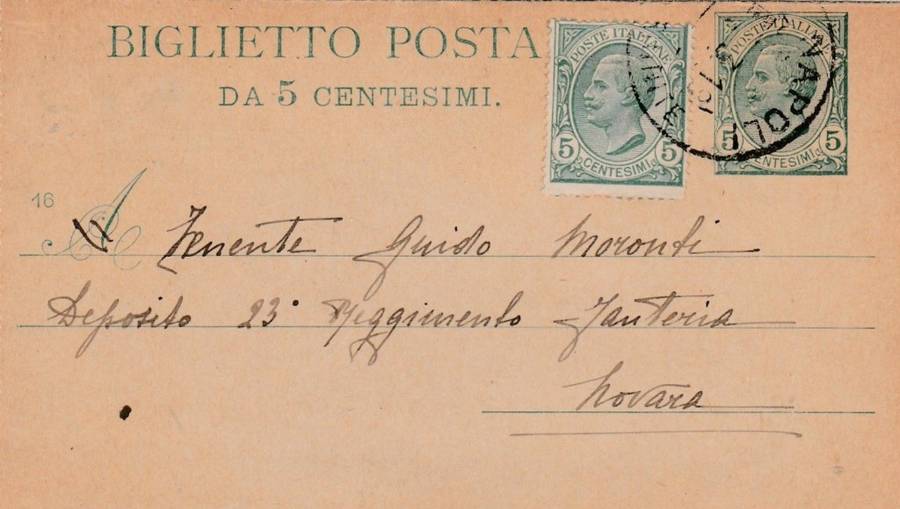 BIGLIETTO POSTA
DA 5 CENTESIMI.
POSTE ITALIANE
5 CENTESIMI 5
POSTE ITALIANE
5 CENTESIMI 5
NAPOLI
16
A Tenente Guido Moronti
Deposito 23° Reggimento Fanteria
Novara